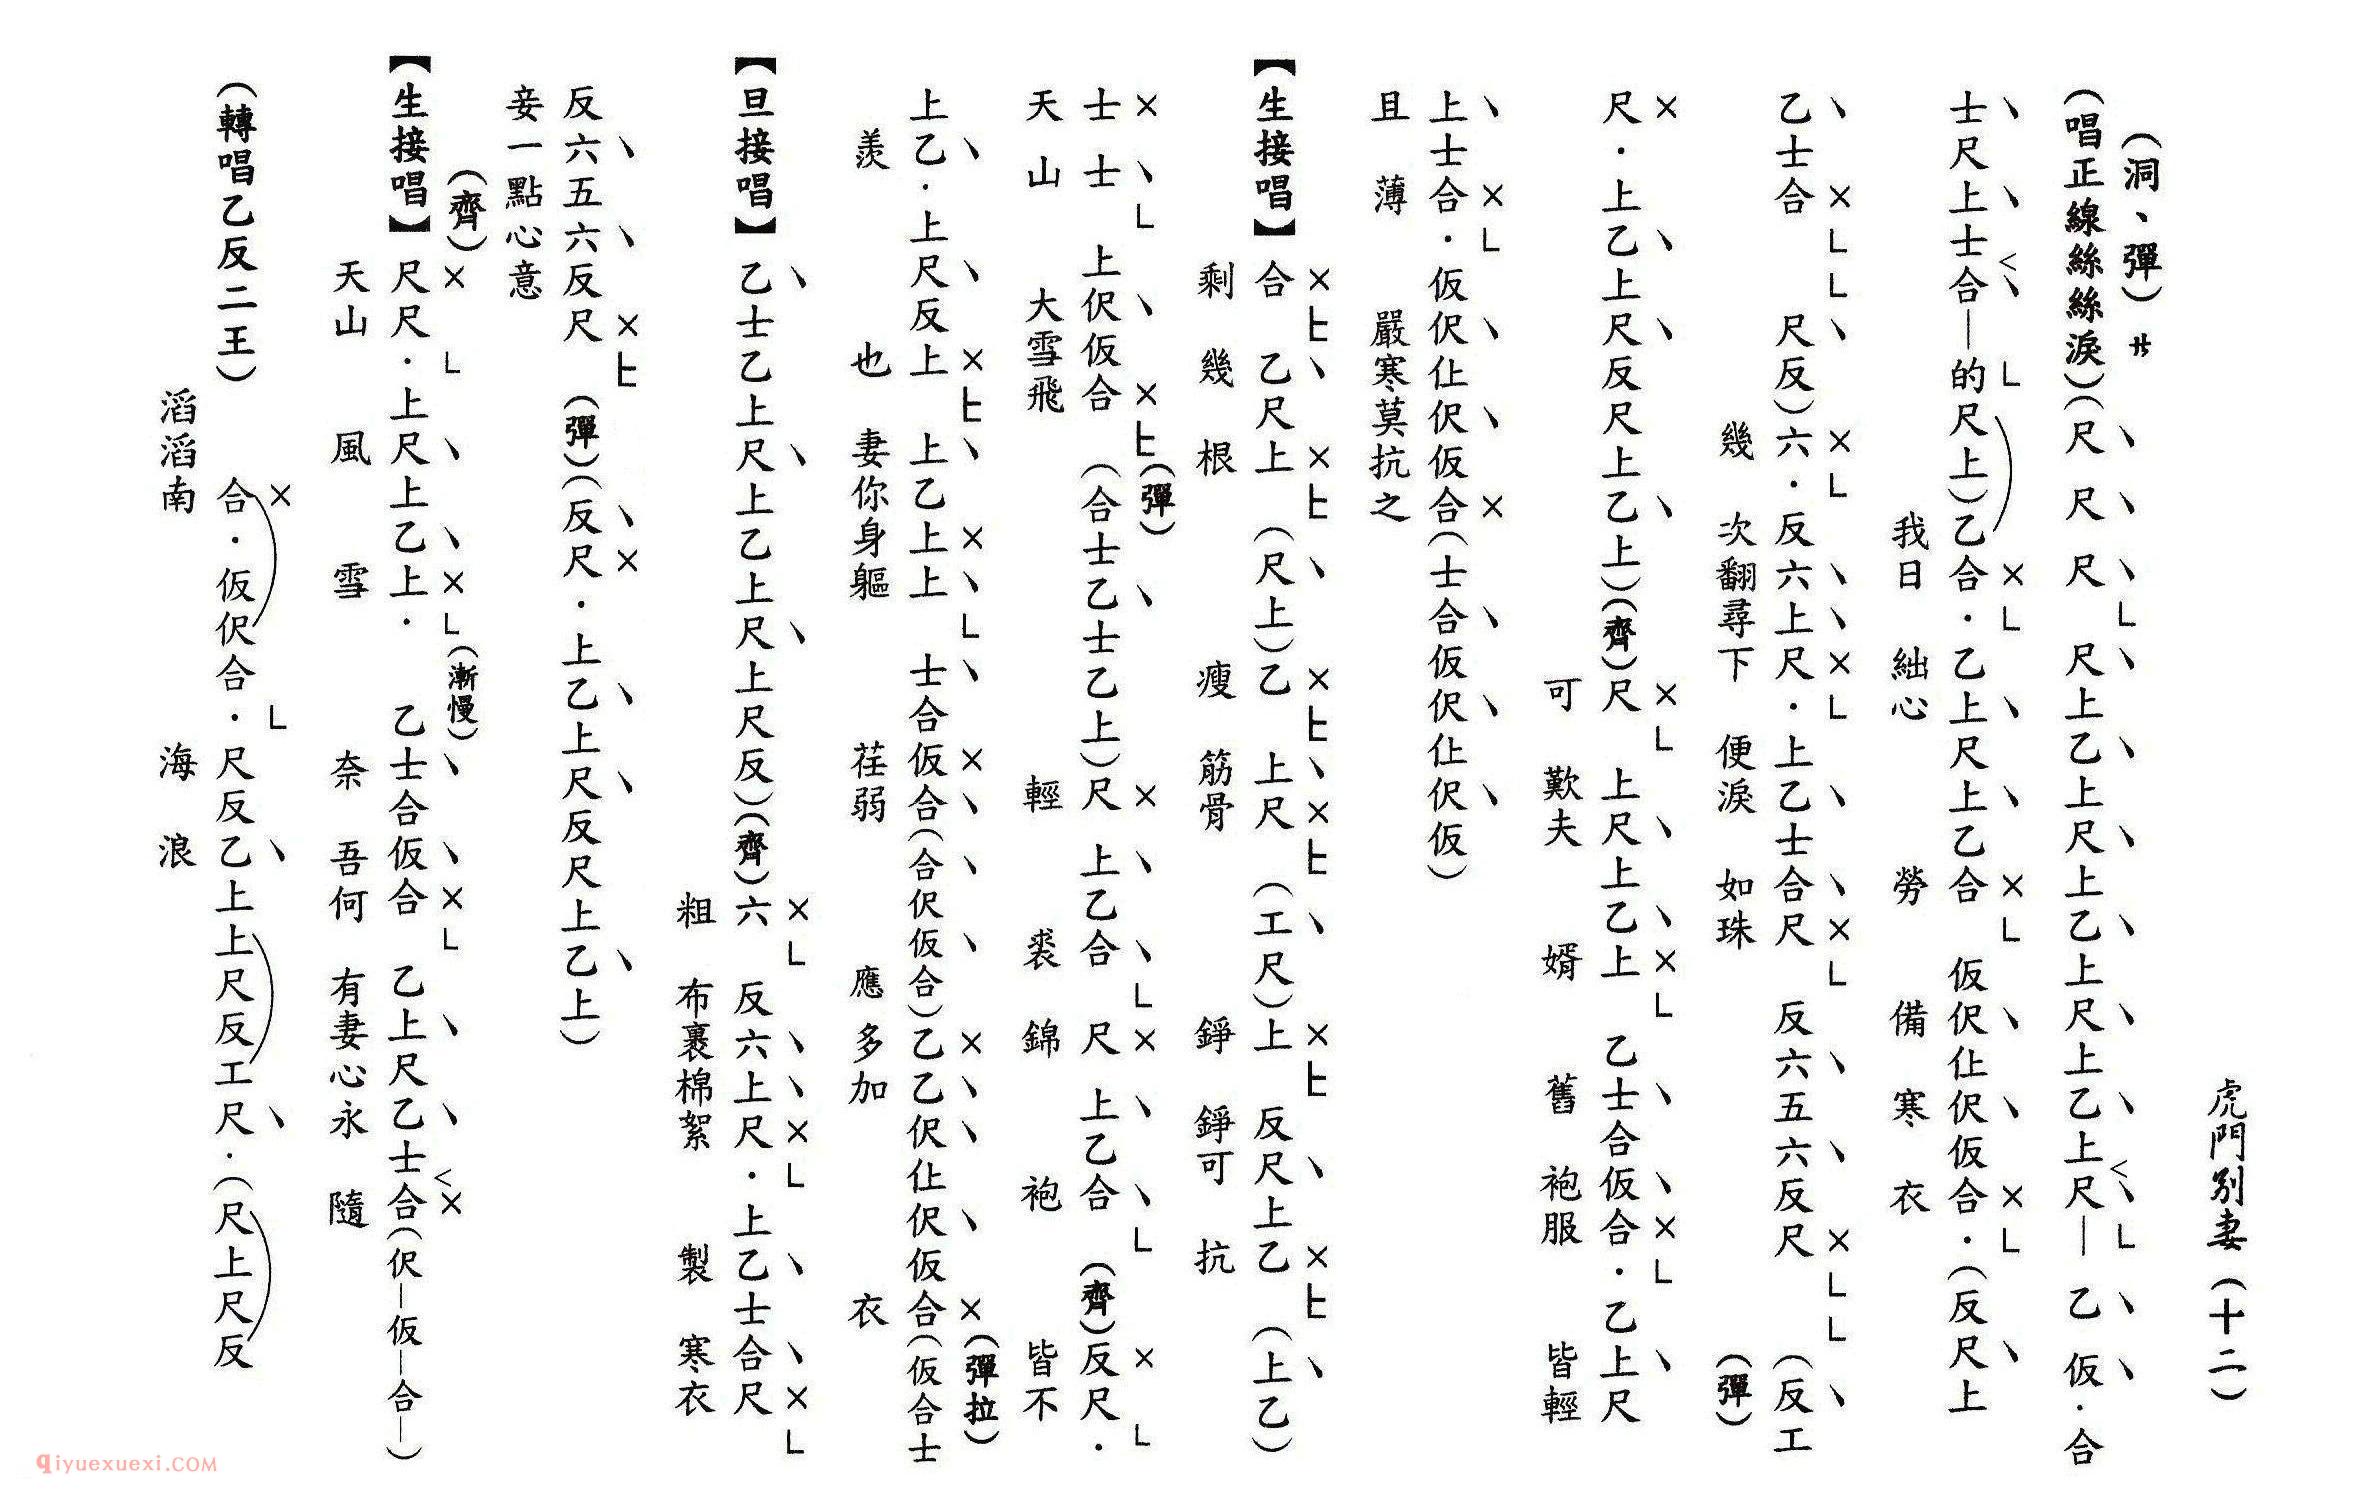 虎門別妻（十二）
（洞、彈）サ
（唱正線絲絲淚）（尺 尺 尺 尺上乙上尺上乙上尺上乙上尺—乙仮．合
士尺上士合—的尺上）乙合．乙上尺上乙合 仮伬仩伬仮合．（反尺上
我日 絀心 勞 備 寒 衣
乙士合 尺反）六．反六上尺．上乙士合尺 反六五六反尺 （彈）（反工
幾 次翻尋下 便淚 如珠
尺．上乙上尺反尺上乙上）（齊）尺 上尺上乙上 乙士合仮合．乙上尺
可 歎夫 婿 舊 袍服 皆輕
上士合．仮伬仩伬仮合（士合仮伬仩伬仮）
且 薄 嚴寒莫抗之
【生接唱】合 乙尺上（尺上）乙 上尺（工尺）上 反尺上乙（上乙）
剩 幾 根 瘦 筋骨 錚 錚可 抗
士 士 上伬仮合 （彈）（合士乙士乙上）尺 上乙合 尺 上乙合 （齊）反尺．
天 山 大雪飛 輕 裘 錦 袍 皆不
上乙．上尺反上 上乙上上 士合仮合（合伬仮合）乙乙伬仩伬仮合（彈拉）（仮合士
羨 也 妻你身軀 荏弱 應 多加 衣
【旦接唱】乙士乙上尺上乙上尺上尺反）（齊）六 反六上尺．上乙士合尺
粗 布裹棉絮 製 寒衣
反六五六反尺 （彈）（反尺．上乙上尺反尺上乙上）
妾一點心意
（齊）
【生接唱】尺尺．上尺上乙上．（漸慢）乙士合仮合 乙上尺乙士合（伬—仮—合—）
天山 風 雪 奈 吾何 有妻心永 隨
（轉唱乙反二王） 合．仮伬合．尺反乙上上尺反工尺．（尺上尺反
滔滔南 海 浪
qiyuexuexi.COM